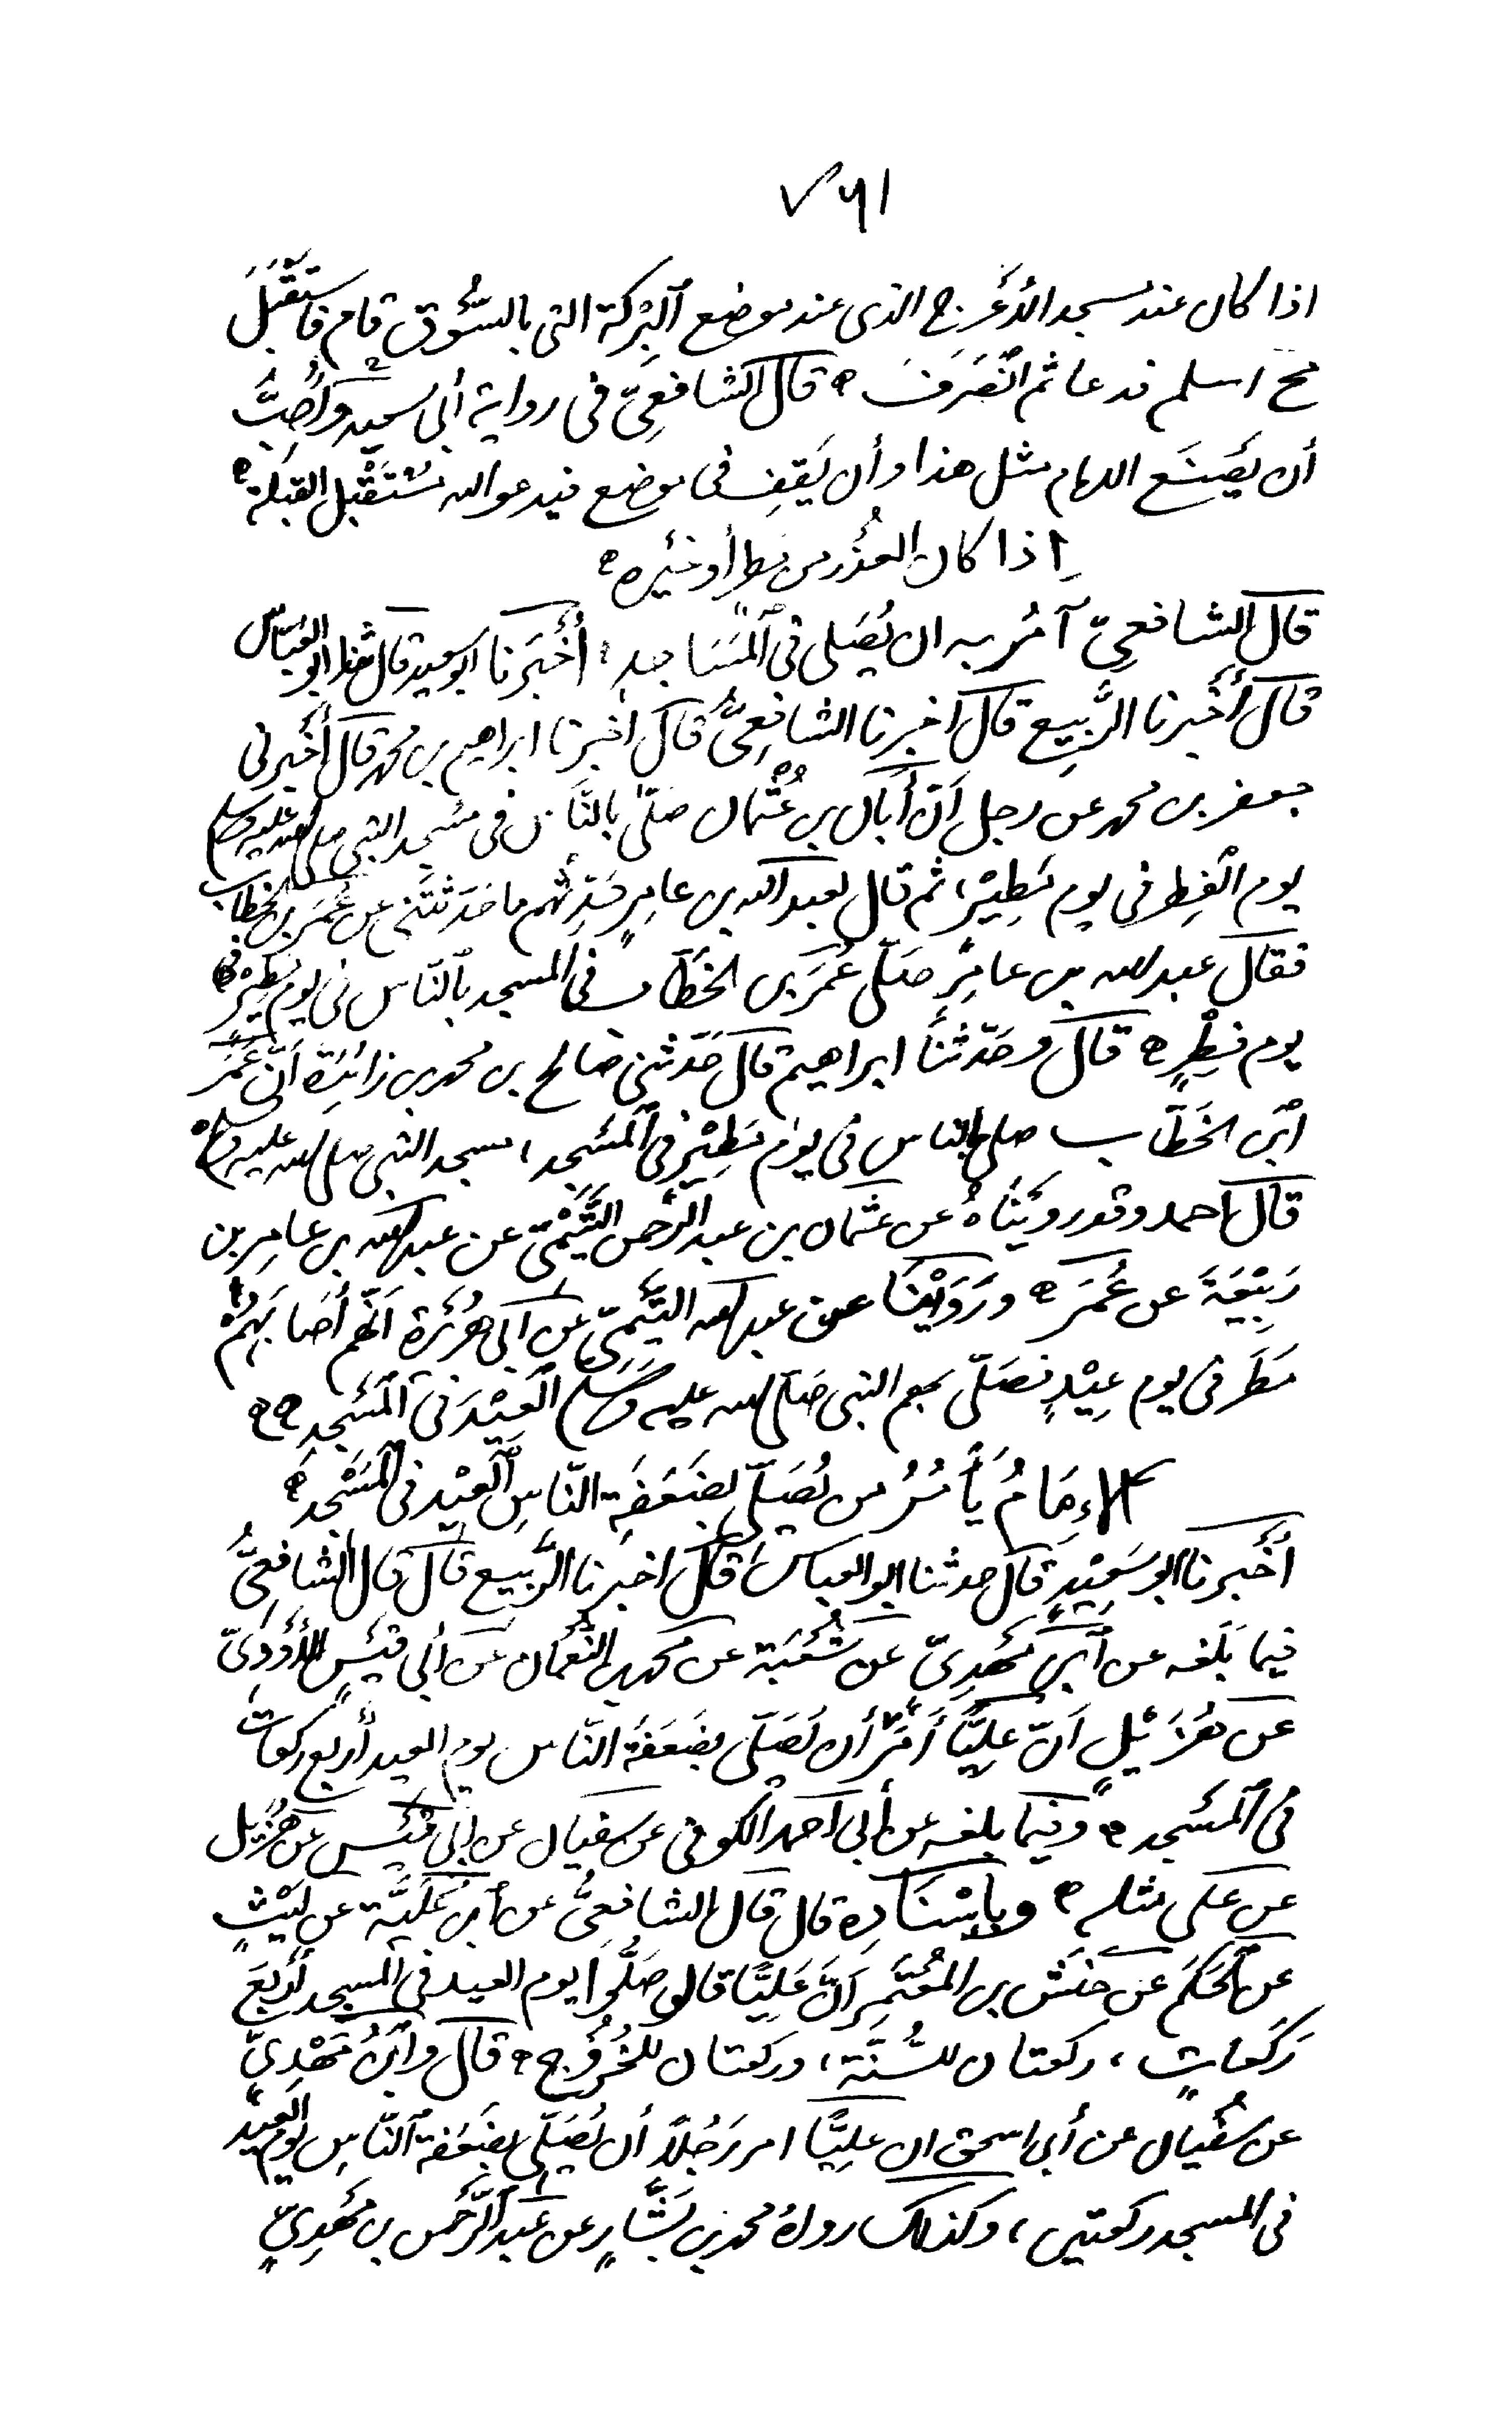 ٧٦١
اذا كان عند مسجد الأعرج الذى عند موضع ٱلبِرْكة التى بالسُّوق قام فاستَقْبَلَ
فج اسلم فدعا ثم ٱنْصَرَفَ ه قال الشافعِىّ فى رواية أبى سعيد وأُحِبُّ
أن يَصْنَع الامام مثل هذا وأن يَقِف فى موضع فيدعو الله مُسْتَقْبِل القبلة ه
اِذا كان العُذْر من مطر أو غَيْره ه
قال الشافعِىّ آمُر به ان يُصَلى فى ٱلمَسَاجِدِ، أَخْبَرنا ابو سعيد قال حدثنا ابو العَبّاس
قال أَخْبَرنا الرَّبِيع قال اخبرنا الشافِعِىُّ قال أخبَرنا ابراهيم بن محمد قال أَخْبَرنى
جعفر بن محمد عن رجل أَنّ أَبَان بن عُثْمان صَلّى بالنَّاس فى مَسْجد النبى صلى الله عليه وسلم
يوم الْفِطر فى يوم مَطِيْر، ثم قال لعبد الله بن عامِرٍ حَدِّثْهم ما حَدَّثْتَنِى عن عُمَر بن الخطاب
فقال عبد الله بن عامِرٍ صَلّى عُمَر بن الخَطَّاب فى المسجد بٱلنَّاس فى يوم مَطِيْرٍ فى
يوم فِطْرٍ ه قال وحَدّثنَا ابراهيم قال حَدّثنى صالح بن محمد بن زائِدَة أَنّ عُمَر
ٱبْنَ الخَطَّاب صلى بالناس فى يوم مَطِيْرٍ فى ٱلْمَسْجد، مسجد النبى صلى الله عليه وسلم ه
قال احمد وقد رويْنَاهُ عن عثمان بن عبد الرَّحمن التَّيْمِىّ عن عبد الله بن عامِر بن
رَبِيْعَةَ عن عُمَرَ ه ورَوَيْنَا عن عبيد الله التَّيْمِىّ عن ابى هُرَيْرَة اَنّهم أَصَابَهُمْ
مَطَر فى يوم عِيْدٍ فصَلّى بهم النبى صَلّى الله عليه وَسلم ٱلعِيْدَ فى ٱلْمَسْجدِ ه ه
الاءِمَامُ يَأْمُرُ من يُصَلّى بضَعَفَةِ النّاسِ ٱلْعِيْد فى ٱلْمَسْجِدِ ه
أَخْبَرنا ابو سَعِيْدٍ قال حدثنا ابو العباس قال اخبَرنا الرَّبِيع قال قال الشافِعِىُّ
فيما بَلَغه عن ٱبْن مَهْدِىّ عن شُعْبَة عن محمد بن النُّعمَان عن أبى قَيْسٍ الأَوْدِىّ
عن هُزَيْلٍ اَنّ عليًّا أَمَرَ أن يُصَلّى بضَعَفَةِ النّاس يوم العيد أربع ركعاتٍ
فى ٱلمسْجد ه وفيما بلغه عن أبى اَحمد الكوفى عن سفيان عن ابى قَيْسٍ عن هُزَيْل
عن على مثله ه وبإسْنَادِهِ قال قال الشافعِىُّ عن ٱبن عُلَيَّة عن لَيْثٍ
عن ٱلحَكَم عن حَنَش بن المُعْتَمِر اَنّ عَلِيًّا قال صَلُّوا يوم العيد فى المسجد أَرْبَعَ
رَكَعَاتٍ، ركعتان للسُّنَّة، وركعتان للخُرُوْج ه قال وٱبْنُ مَهْدِىّ
عن سُفْيان عن أبى اسحق ان عليًّا امر رَجُلاً أن يُصَلّى بضَعَفة ٱلنَّاسِ يوم العِيْد
فى المسجد ركعتين، وكذلك رواهُ محمد بن بَشَّارٍ عن عَبد الرَّحْمن بن مَهْدِىٍّ